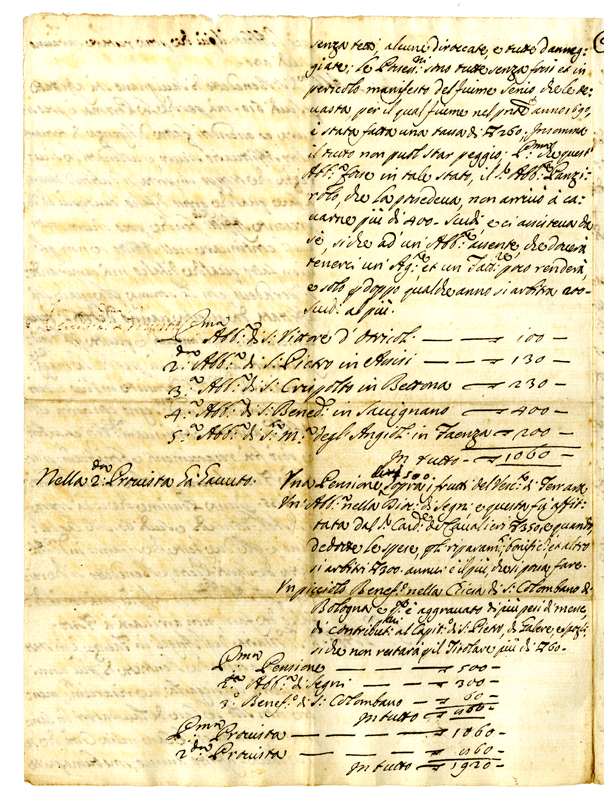 senza tetti, alcune diroccate, e tutte danneg-
giate; le Possess.i sono tutte senza fossi et in
pericolo manifesto del fiume Senio che le de-
vasta per il qual fiume nel anno 1692
è stata fatta una tassa di 260. Insomma
il tutto non può star peggio; P.ma che quest'
Abb.a fosse in tale stato, il S.r Abb.e Panzi-
rolo, che la possedeva, non arrivò à ca-
varne più di 400. Scudi, e ci assisteva da
sè, siche ad' un Abb.e assente, che dovrà
tenerci un' Ag.te et un poco renderà,
e solo doppo qualche anno si arbitra 200
Scudi al più.
P.ma Abb.a di S. Vittore d' Otricoli — — 100 —
2.da Abb.a di S. Pietro in Assisi — — 130 —
3.a Abb.a di S. Crispolto in Bettona — 230 —
4.a Abb.a di S. Bened.o in Savignano — 400 —
5.a Abb.a di S. M.a degl' Angioli in Faenza — 200 —
In tutto — 1060 —
Nella 2.da Provista hà havuto.
500
Una Pensione sopra i frutti del Vesc.o di Ferrara
Un' Abb.a nella Dioc. di Segni, e questa fù affit-
tata dal S. Card. de Cavalieri 350, e quando,
dedotte le spese, riparam.ti, bonific.i et altro
si arbitri 300. annui è il più, che si possa fare.
Un picciolo Benef.o nella Chiesa di S. Colombano di
Bologna, e q.to è aggravato di più pesi di messe,
di contributi al Capit.o di S. Pietro, di
siche non restarà p il Titolare più di 60.
P.ma Pensione — — — 500 —
2.da Abb.a di Segni — — — 300 —
3.o Benef.o di S. Colombano — 60 —
In tutto — 860 —
P.ma Provista — — — 1060 —
2.da Provista — — — 860 —
In tutto — 1920 —